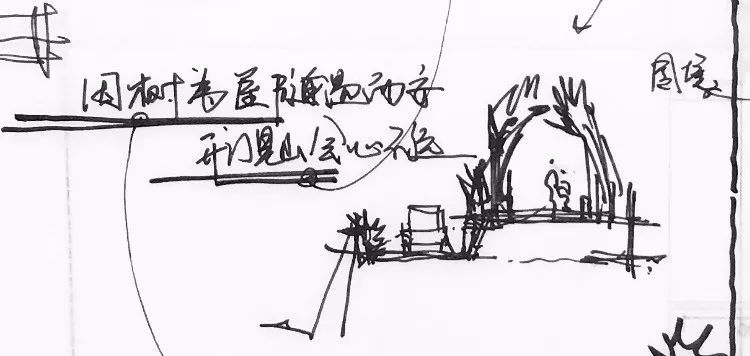 因树为屋随遇而安
开门见山会心不远